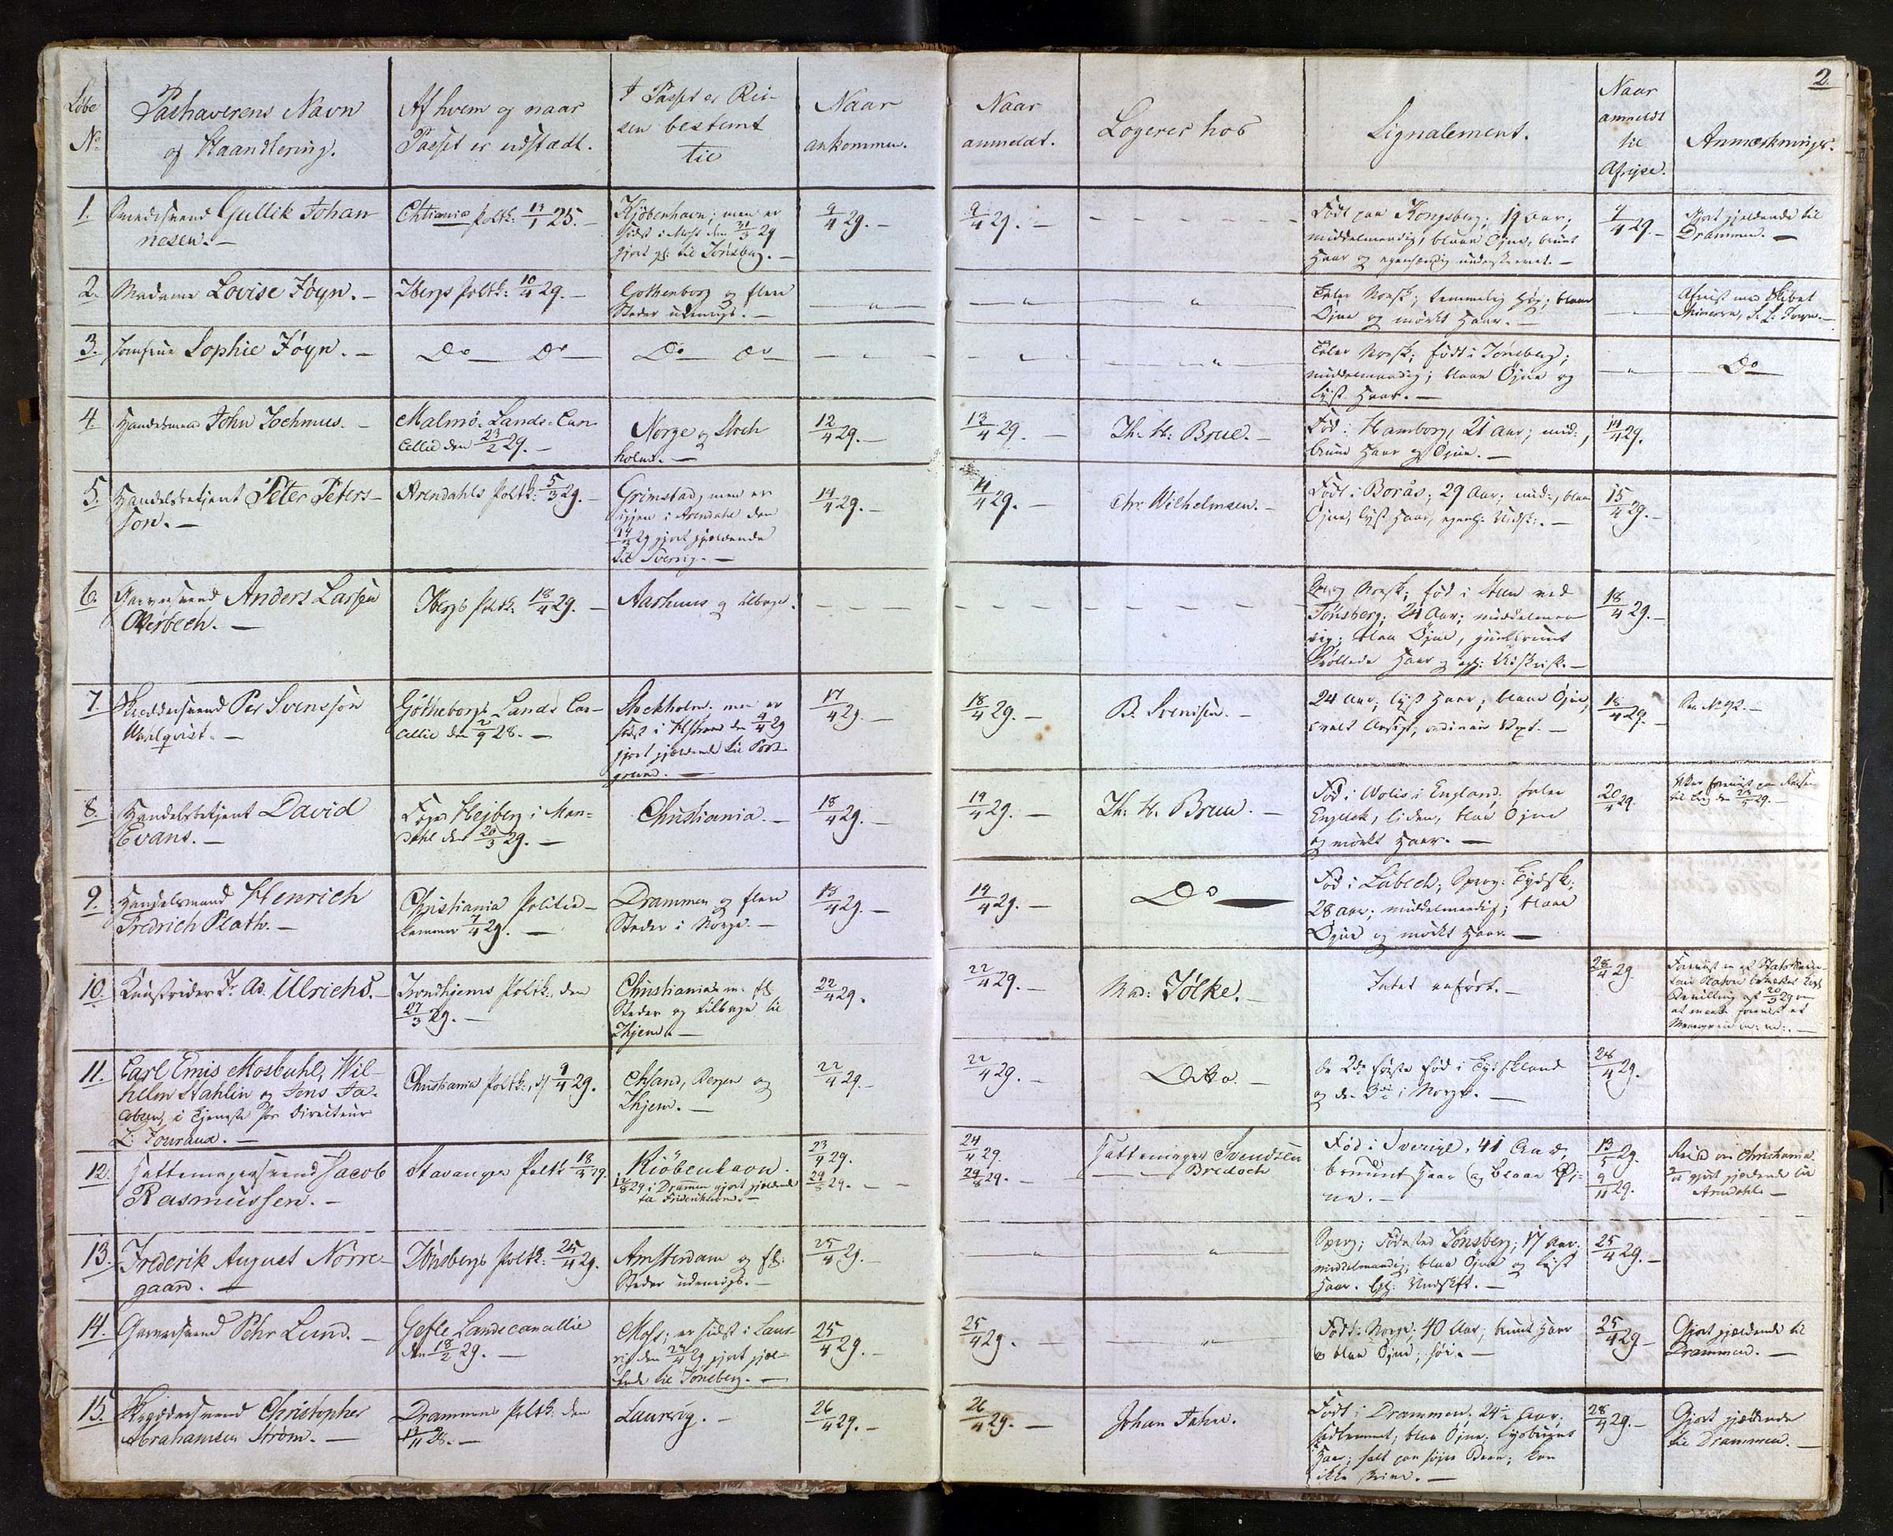 2
Løbe
No
Pashaverens Navn
og Haandtering.
Af hvem og naar
Passet er udstædt.
I Passet er Rei-
sen bestemt
til
Naar
ankommen.
Naar
anmeldt.
Logerer hos
Signalement.
Naar
anmeldt
til
Afrejse.
Anmærkninger.
1. Smedesvend Gullik Johan-
nesen. —
Chtiania Poltk: 25. —
Kjøbenhavn; men er
sidst i Moss den 31/3 29
gjort gj: til Tønsberg. —
9/4 29. —
9/4 29. —
Født paa Kongsberg; 19 Aar;
middelmaadig, blaae Øjne, bruunt
Haar og egenhændig underskrevet. —
9/4 29. —
Gjort gjældende til
Drammen. —
2. Madame Lovise Føyn. —
Tbergs Poltk: 10/4 29. —
Gothenborg og flere
Steder udenrigs. —
Taler Norsk; temmelig høj; blaae
Øjne og mørkt Haar. —
Afreist med Skibet
Minerva, S. L. Føyn. —
3. Jomfrue Sophie Føyn. —
Do — Do
Do — Do
Taler Norsk; født i Tønsberg;
middelmaadig; blaae Øjne og
lyst Haar. —
Do
4. Handelsmand John Jochmus. —
Malmø Lands-Can-
cellie den 23/2 29. —
Norge og Stock-
holm. —
12/4 29. —
13/4 29. —
Th: H: Brue. —
Fød i Hamborg, 21 Aar; mid:,
bruune Haar og Øjne. —
14/4 29.
5. Handelsbetjent Peter Peters-
son. —
Arendahls Poltk: 5/3 29. —
Grimstad, men er
igjen i Arendahl den
14/3 29 gjort gjældende
til Sverrig. —
14/4 29. —
14/4 29. —
Chr: Wilhelmsen. —
Født i Borås; 29 Aar; mid:, blaae
Øjne, lyst Haar, egenh: Udsk:. —
15/4 29. —
6. Garversvend Anders Larsen
Ørbech. —
Tbergs Poltk: 18/4 29. —
Aarhuus og tilbage.
Sprog Norsk; fød i Steen ved
Tønsberg; 24 Aar; middelmaa-
dig; blaae Øjne, guulbruunt
krøllede Haar og egh: Udskrift. —
18/4 29. —
7. Skreddersvend Per Svensson
Göthebergs Lands Can-
cellie den 2/9 28. —
Stockholm. men er
9/4 29
gjort gjældende til Pors-
grund. —
17/4 29. —
18/4 29. —
B. Svendsen. —
24 Aar; lyst Haar; blaae Øjne,
ovalt Ansigt, ordinair Vext. —
18/4 29. —
8. Handelsbetjent David
Evans. —
Foged Hejberg i Man-
dahl den 20/3 29. —
Christiania. —
18/4 29. —
19/4 29. —
Th. H. Bruu. —
Fød i Wales i England. taler
Engelsk, liden, blaae Øjne
og mørkt Haar. —
20/4 29.
9. Handelsmand Henrich
Fredrich Plath. —
Christiania Politie-
kammer 7/4 29. —
Drammen og flere
Steder i Norge. —
18/4 29. —
19/4 29. —
Do
Fød i Lübech; Sprog: Tydsk;
28 Aar; middelmaadig; blaae
Øjne og mørkt Haar. —
10. Kunstrider J. Ad. Ullrichs. —
Trondhjems Poltk., den
27/3 29. —
Christiania m: fl:
Steder og tilbage til
Thjem. —
22/4 29.
22/4 29. —
Mad: Jølke. —
Intet anført. —
28/4 29
11. Carl Emis Mosbuhl, Wil-
helm Stahlin og Jens Ja-
cobsen, i Tjeneste hos Directeur
L: Tourniaux. —
Christiania Poltk., d: 9/4 29.
Chsand, Bergen og
Thjem. —
22/4 29. —
22/4 29. —
Ditto. —
De 2de første fød i Tydskland
og den 3die i Norge. —
28/4 29.
12. Hattemagersvend Jacob
Rasmussen. —
Stavanger Poltk 18/3 29.
Kiøbenhavn.
29 i Drammen gjort gjældende
til Frederikshavn. —
23/4 29. —
29/8 29. —
24/4 29.
29/8 29. —
Hattemager Svendsen
— Bredoch
Fød i Sverige, 41 Aar,
bruunt Haar og blaae Øj-
ne. —
13/5 29.
9/11 29.
gjort gjældende til
Arendahl —
13. Frederik August Nørre-
gaard. —
Tønsbergs Poltk: 25/4 29.
Amsterdam og fl:
Steder udenrigs. —
25/4 29. —
Sprog; Fødested Tønsberg; 17 Aar.
middelmaadig; blaae Øjne og lyst
Haar. Egh: Underskft. —
25/4 29. —
14. Garversvend Pehr Lund. —
Gefle Landscancellie
den 18/2 29. —
Moss; er sidst i Laur-
vig den 24/4 29 gjort gjæl-
dende til Tønsberg. —
25/4 29. —
25/4 29. —
Født: Norge, 40 Aar, bruunt Haar
og blaae Øjne; høi. —
25/4 29 —
Gjort gjældende til
Drammen. —
15. Skræddersvend Christopher
Abrahamsen Strøm. —
Drammens Poltk. den
28. —
Laurvig. —
26/4 29. —
26/4 29. —
Johan Jahn.
Født i Drammen, 24½ Aar;
blaae Øjne, lysbruunt
Haar;
ikke skrive. —
28/4 29. —
Gjort gjældende
til Drammen. —